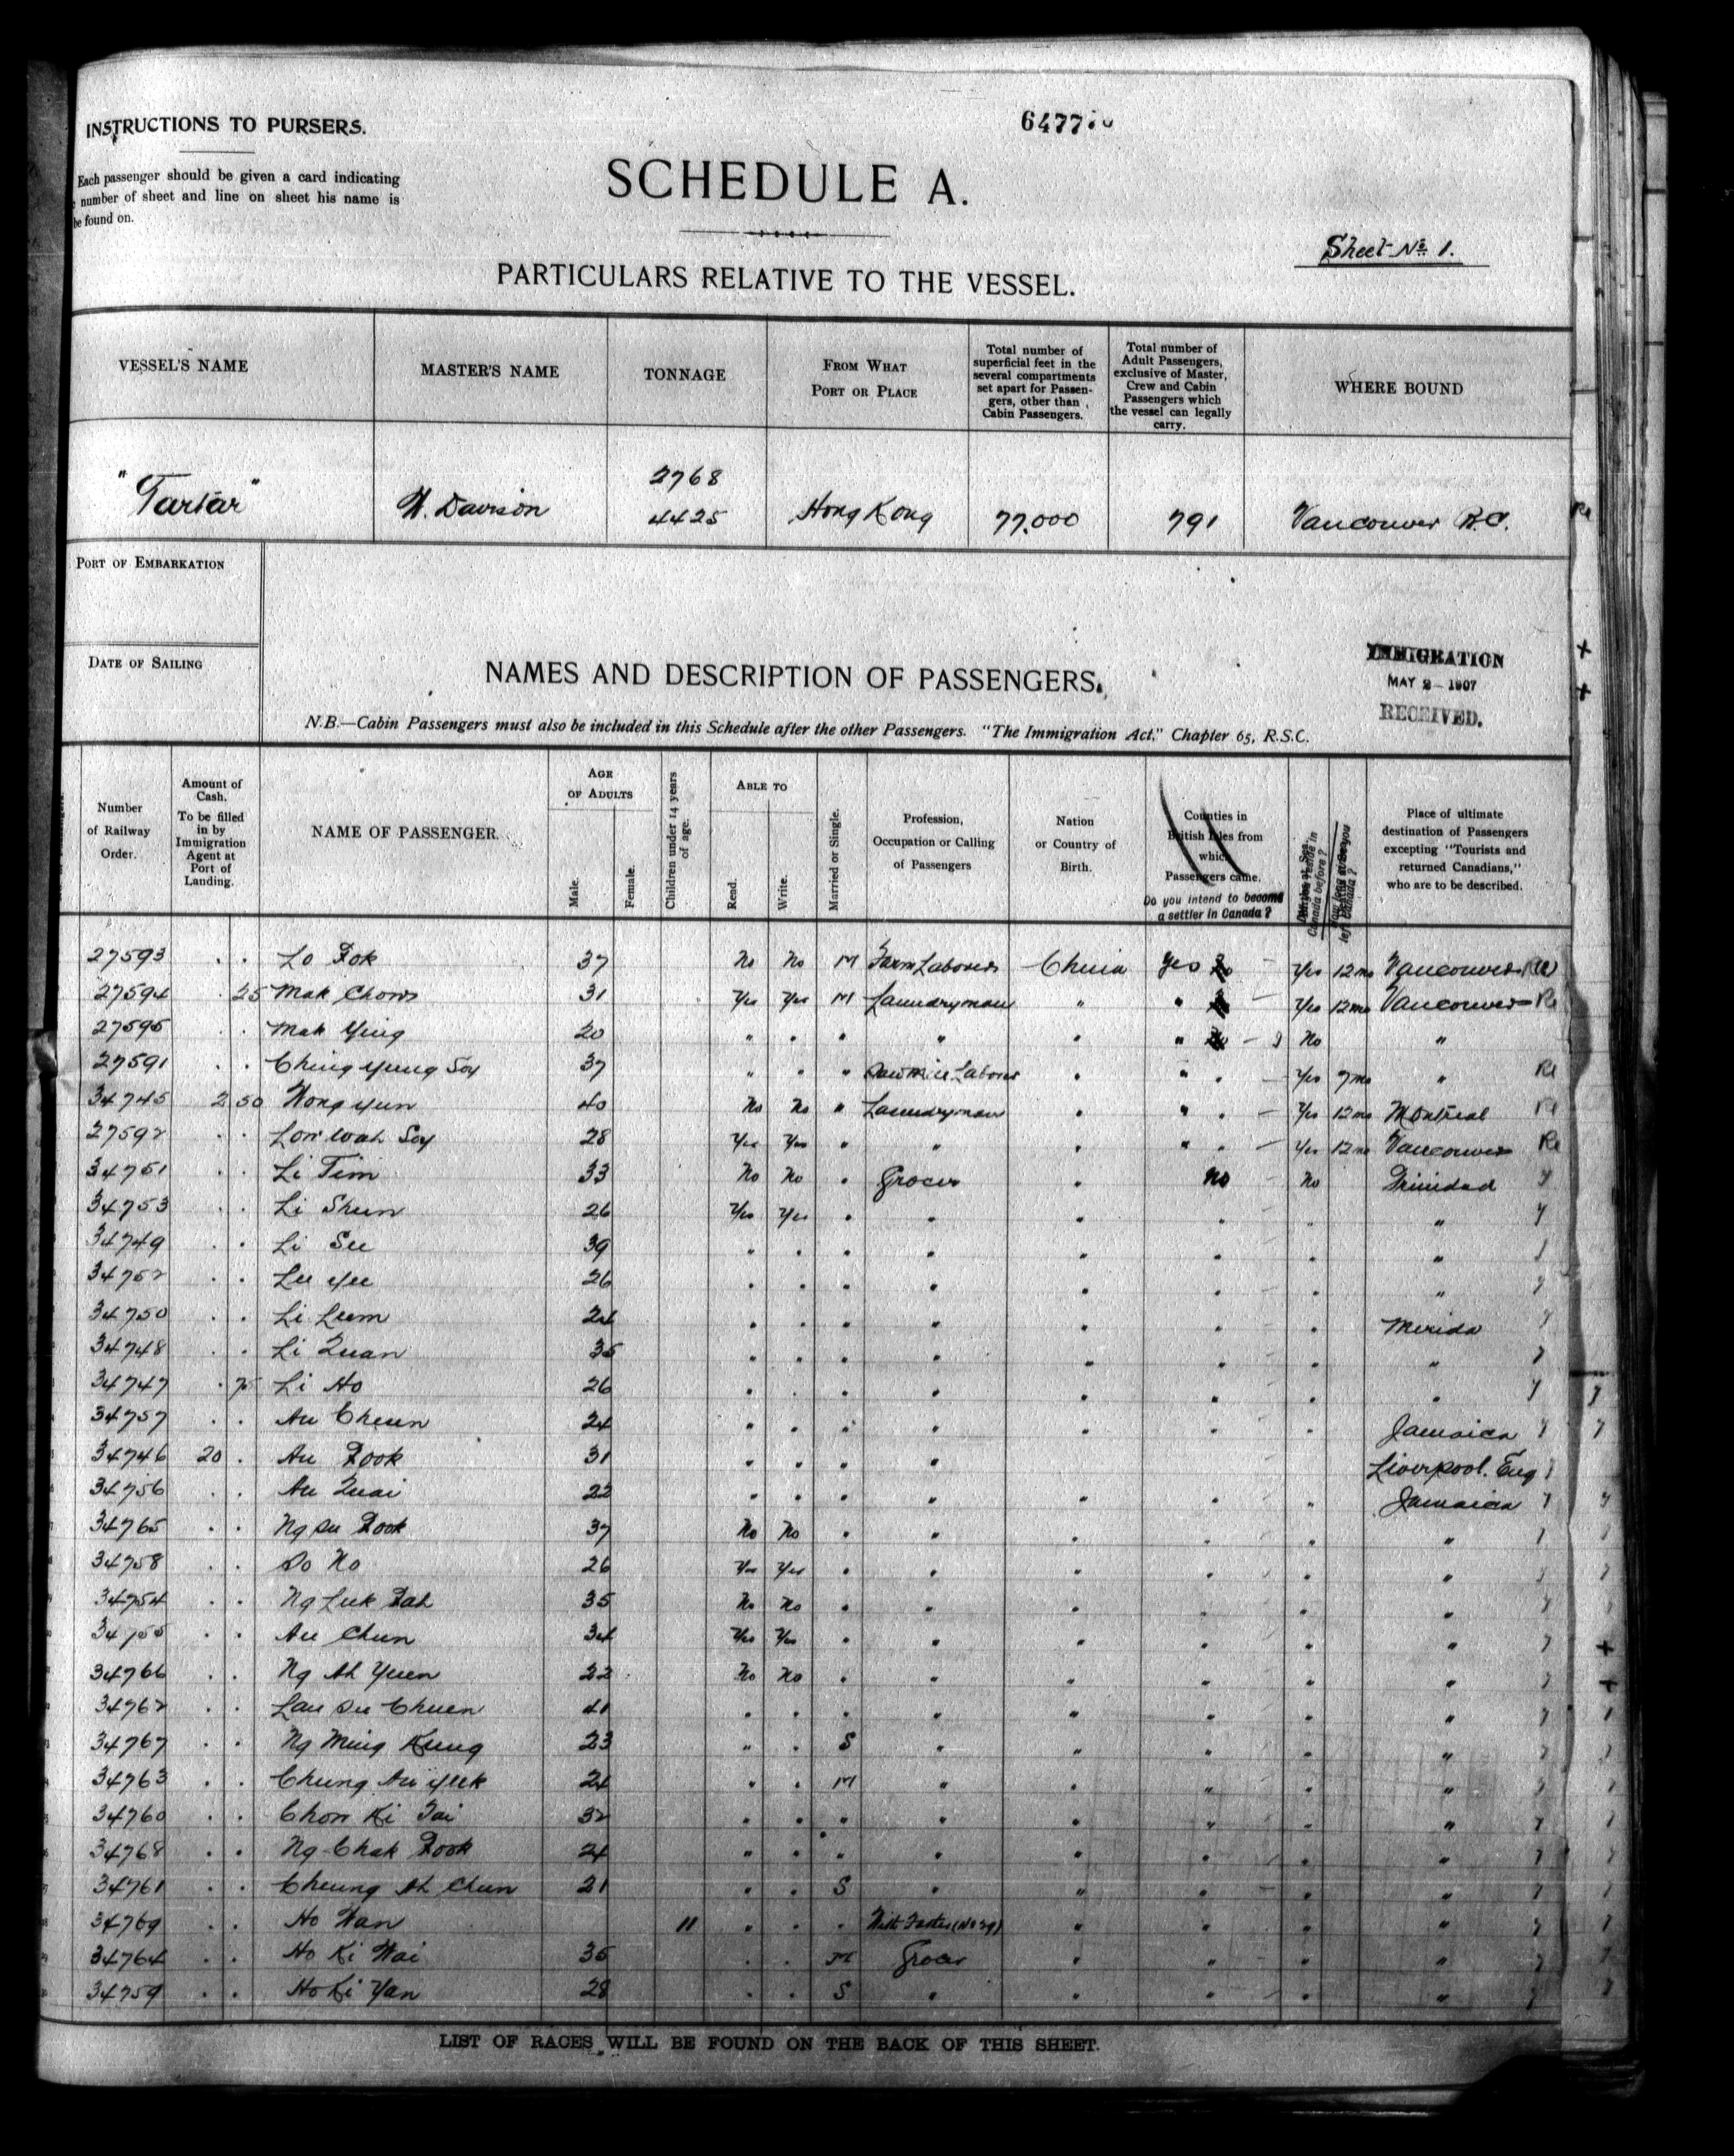 INSTRUCTIONS TO PURSERS.
Each passenger should be given a card indicating
number of sheet and line on sheet his name is
be found on.
6477
SCHEDULE A.
Sheet No 1.
PARTICULARS RELATIVE TO THE VESSEL.
VESSEL'S NAME MASTER'S NAME TONNAGE FROM WHAT PORT OR PLACE Total number of superficial feet in the several compartments set apart for Passengers, other than Cabin Passengers. Total number of Adult Passengers, exclusive of Master, Crew and Cabin Passengers which the vessel can legally carry. WHERE BOUND
"Tartar" W. Davison 2768 4425 Hong Kong 77,000 791 Vancouver B.C.
PORT OF EMBARKATION
DATE OF SAILING
NAMES AND DESCRIPTION OF PASSENGERS.
IMMIGRATION
MAY 2 - 1907
RECEIVED.
N.B.—Cabin Passengers must also be included in this Schedule after the other Passengers. "The Immigration Act," Chapter 65, R.S.C.
Number of Railway Order. Amount of Cash. To be filled in by Immigration Agent at Port of Landing. NAME OF PASSENGER. AGE OF ADULTS Male. Female. Children under 14 years of age. ABLE TO Read. Write. Married or Single. Profession, Occupation or Calling of Passengers Nation or Country of Birth. Counties in British Isles from which Passengers came. Do you intend to become a settler in Canada? Canada before? left Canada? Place of ultimate destination of Passengers excepting "Tourists and returned Canadians," who are to be described.
27593 Lo Fok 37 No No M Farm Laborer China Yes Yes 12 mo Vancouver Re
27594 25 Mak Chow 31 Yes Yes M Laundryman " " Yes 12 mo Vancouver Re
27595 Mak Ying 20 " " " " " " No "
27591 Ching Yung Soy 37 " " " Sawmill Laborer " " Yes 7 mo " Re
34745 2 50 Wong Yun 40 No No " Laundryman " " Yes 12 mo Montreal Re
27592 Lon Wah Soy 28 Yes Yes " " " " Yes 12 mo Vancouver Re
34751 Li Tim 33 No No " Grocer " No No Trinidad y
34753 Li Shun 26 Yes Yes " " " " " " y
34749 Li See 39 " " " " " " " "
34752 Lee Yee 26 " " " " " " " " y
34750 Li Leem 24 " " " " " " " Merida y
34748 Li Quan 35 " " " " " " " " y
34747 75 Li Ho 26 " " " " " " " " y
34757 Au Cheun 24 " " " " " " " Jamaica y
34746 20 Au Fook 31 " " " " Liverpool. Eng
34756 Au Quai 22 " " " " " " " Jamaica y
34765 Ng Su Fook 37 No No " " " " " "
34758 So No 26 Yes Yes " " " " " "
34754 Ng Luk Fah 35 No No " " " " " " y
34755 Au Chun 34 Yes Yes " " " " " " y
34766 Ng Ah Yuen 22 No No " " " " " " y
34762 Lau Su Chuen 41 " " " " " " " " y
34767 Ng Ming Kung 23 " " S " " " " " y
34763 Chung Au Yuk 24 " " M " " " " " y
34760 Chon Ki Tai 32 " " " " " " " " y
34768 Ng Chak Fook 24 " " " " " " " " y
34761 Cheung Ah Chun 21 " " S " " " " " y
34769 Ho Wan 11 " " " With Father (No 29) " " " " y
34764 Ho Ki Wai 35 " " M Grocer " " " " y
34759 Ho Ki Yan 28 " " S " " " " " y
LIST OF RACES WILL BE FOUND ON THE BACK OF THIS SHEET.